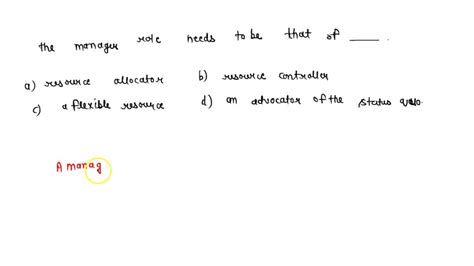 the manager role needs to be that of _____ .
a) resource allocator b) resource controller
c) a flexible resource d) an advocator of the status quo.
A manag